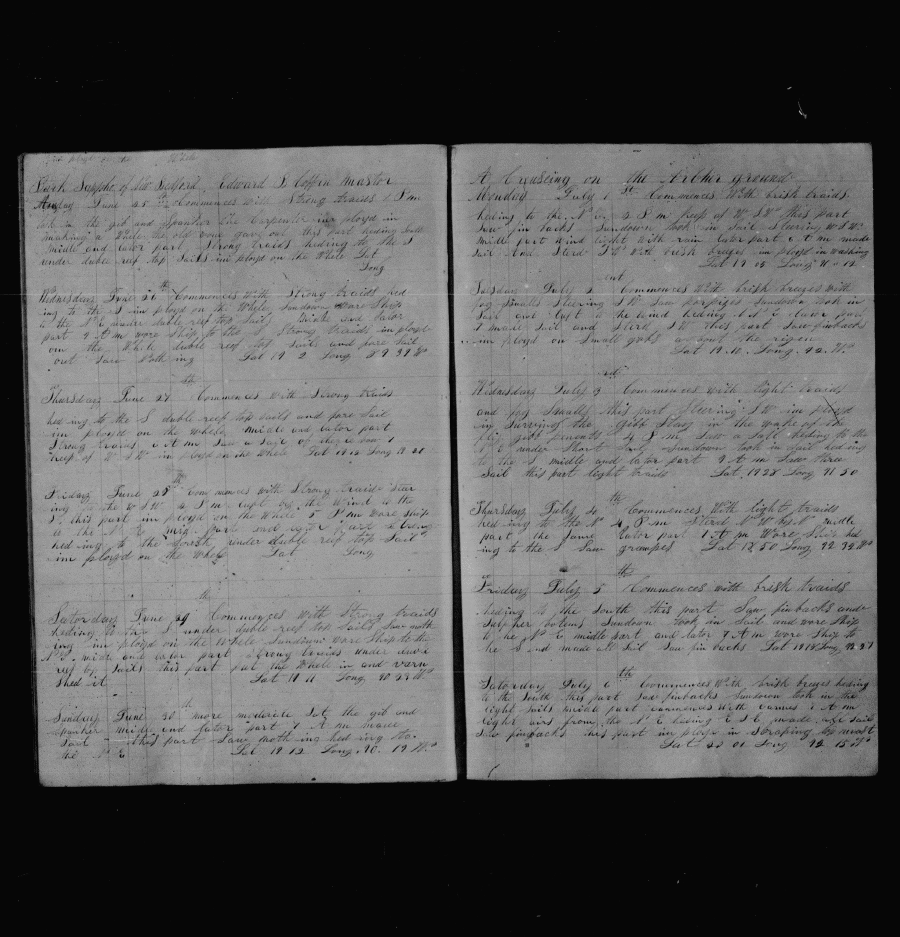 Bark Sappho of New Bedford Edward B Coffin Mastor
June 25 th Commences with Strong traids 1 P m
in the gib and Spanker the Carpenter im ployd in
making a Whele the old gave out this part heding
middle and lator part Strong traids heding to the S
under duble reef top Sails im ployd on the Whele Lat
Long
Wednesday June 26 th Commences with Strong traids hed
ing to the S im ployd on the Whele Sundown wore Ship
to the N E under duble reef top Sails midle and lator
part 9 A m wore Ship to the S Strong traids im ployd
on the Whele duble reef top Sails and fore Sail
out Saw Noth ing Lat 19 2 Long 89 39 W
th
Thursday June 27 Commences with Strong traids
hed ing to the S duble reef top Sails and fore Sail
im ployd on the Whele middle and lator part
Strong traids A m Saw a Sail
Keep of W S W im ployd on the Whele Lat 19 12 Long
th
Friday June 28 Commences with Strong traids Stear
ing to the W S W P m the Wind to the
S this part im ployd on the Whele 5 P m wore Ship
to the N E part and lator part Strong
hed ing to the South under duble reef top Sails
im ployd on the Whele Lat Long
th
Saturday June 29 Commences With Strong traids
heding to the S under duble reef top Sails Saw noth
ing im ployd on the Whele Sundown wore Ship to the
N E midle and lator part Strong traids under duble
reef top Sails this part put the Whele in and varn
Shed it Lat 19 11 Long 90 29 W
th
Sunday June 30 more moderate Set the gib and
Spanker midle and lator part 7 A m made
Sail this part Saw noth ing hed ing to
the N E Lat 19 12 Long 90 19 W
A Creuseing on the Archer ground
Monday July 1 St Commences With brisk traids
heding to the N E 2 P m keep of W S W this part
Saw fin backs Sundown took in Sail Steering W S W
midle part Wind light With rain lator part 6 A m made
Sail and Sterd S W With brisk breezes im ployd in washing
Lat 19 15 Long 91 12
ent
Tuesday July 2 Commences With brisk breezes with
fog Smalls Steering S W Saw porpoizes Sundown took in
Sail and luft to the Wind heding N N E lator part
7 made Sail and Sterd S W this part Saw finbacks
im ployd on Small gobs about the rigen
Lat 19 10 Long 92 W
rd
Wednesday July 3 Commences with light traids
and fog Smalls this part Steering S W im ployd
in Surveing the gibb Stay in the wake of the
fliing gibb 4 P m Saw a Sail heding to the
N E under Short Sail Sundown took in Sail hed ing
to the S midle and lator part 9 A m Saw three
Sail this part light traids Lat 19 28 Long 91 50
th
Thursday July 4 Commences With light traids
hed ing to the N 4 P m Sterd N W by N midle
part the Same lator part 1 A m Wore Ship hed
ing to the S Saw grampes Lat 18 50 Long 92 32 W
th
Friday July 5 Commences with brisk traids
heding to the South this part Saw finbacks and
Sulpher botoms Sundown took in Sail and wore Ship
to the N E middle part and lator 7 A m wore Ship to
the S and made all Sail Saw fin backs Lat 19 18 Long 92 27
th
Saturday July 6 Commences With brisk breezes heding
to the South this part Saw finbacks Sundown took in the
light Sails midle part comences With calmes 7 A m
light airs from the N E heding E S E made all Sail
Saw finbacks this part im ployd in Scraping
Lat 20 01 Long 92 15 W